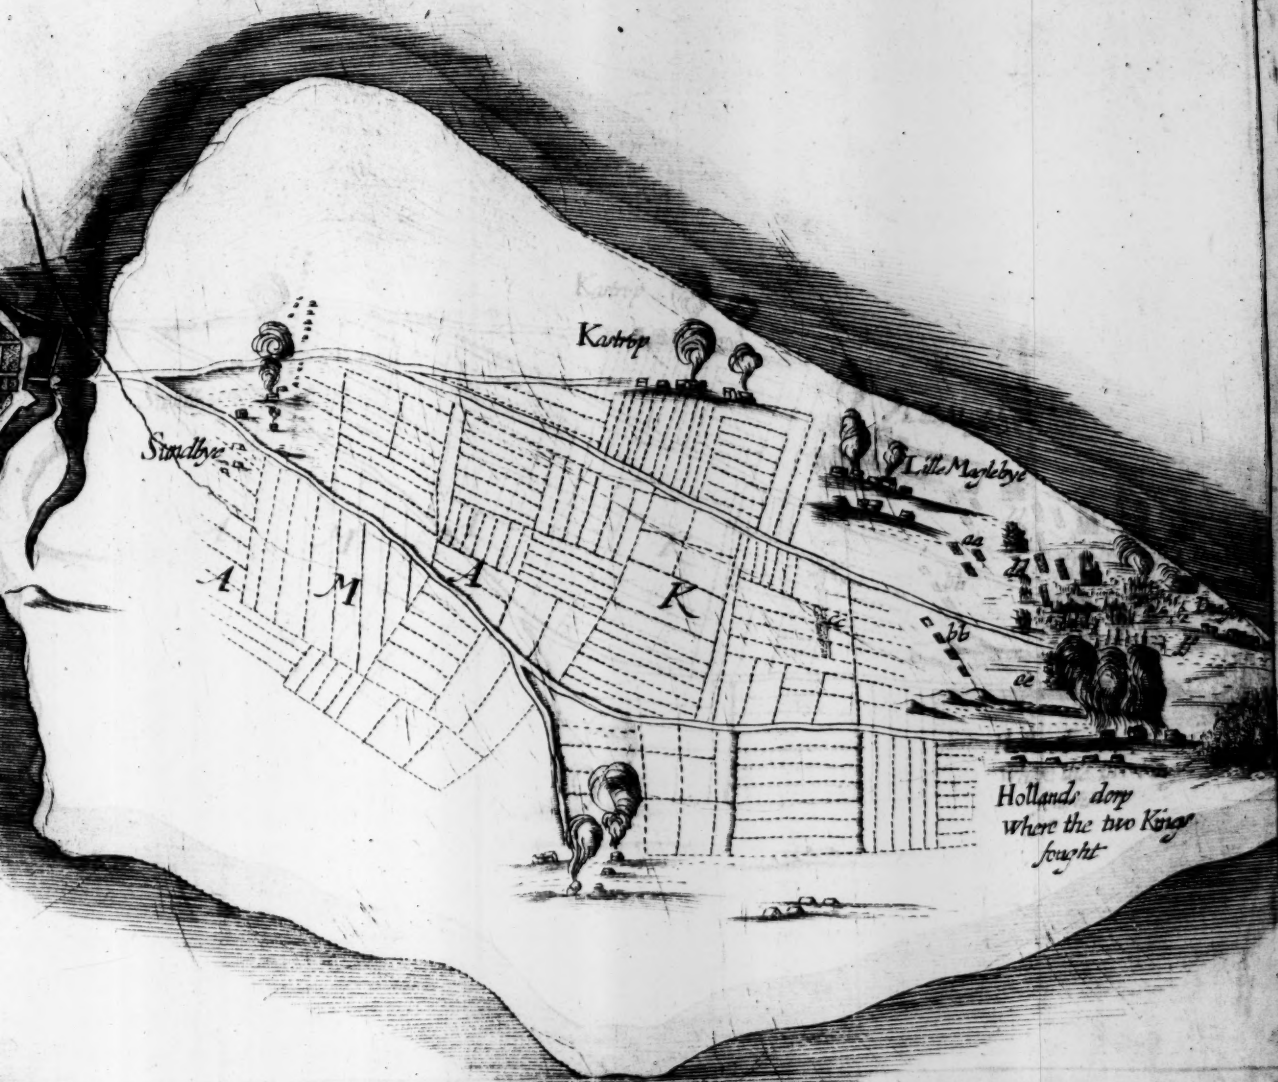 Kastrop
Sundbye
Lille Maglebye
aa
dd
A M A K
cc
bb
ee
Hollands dorp
where the two Kings
fought